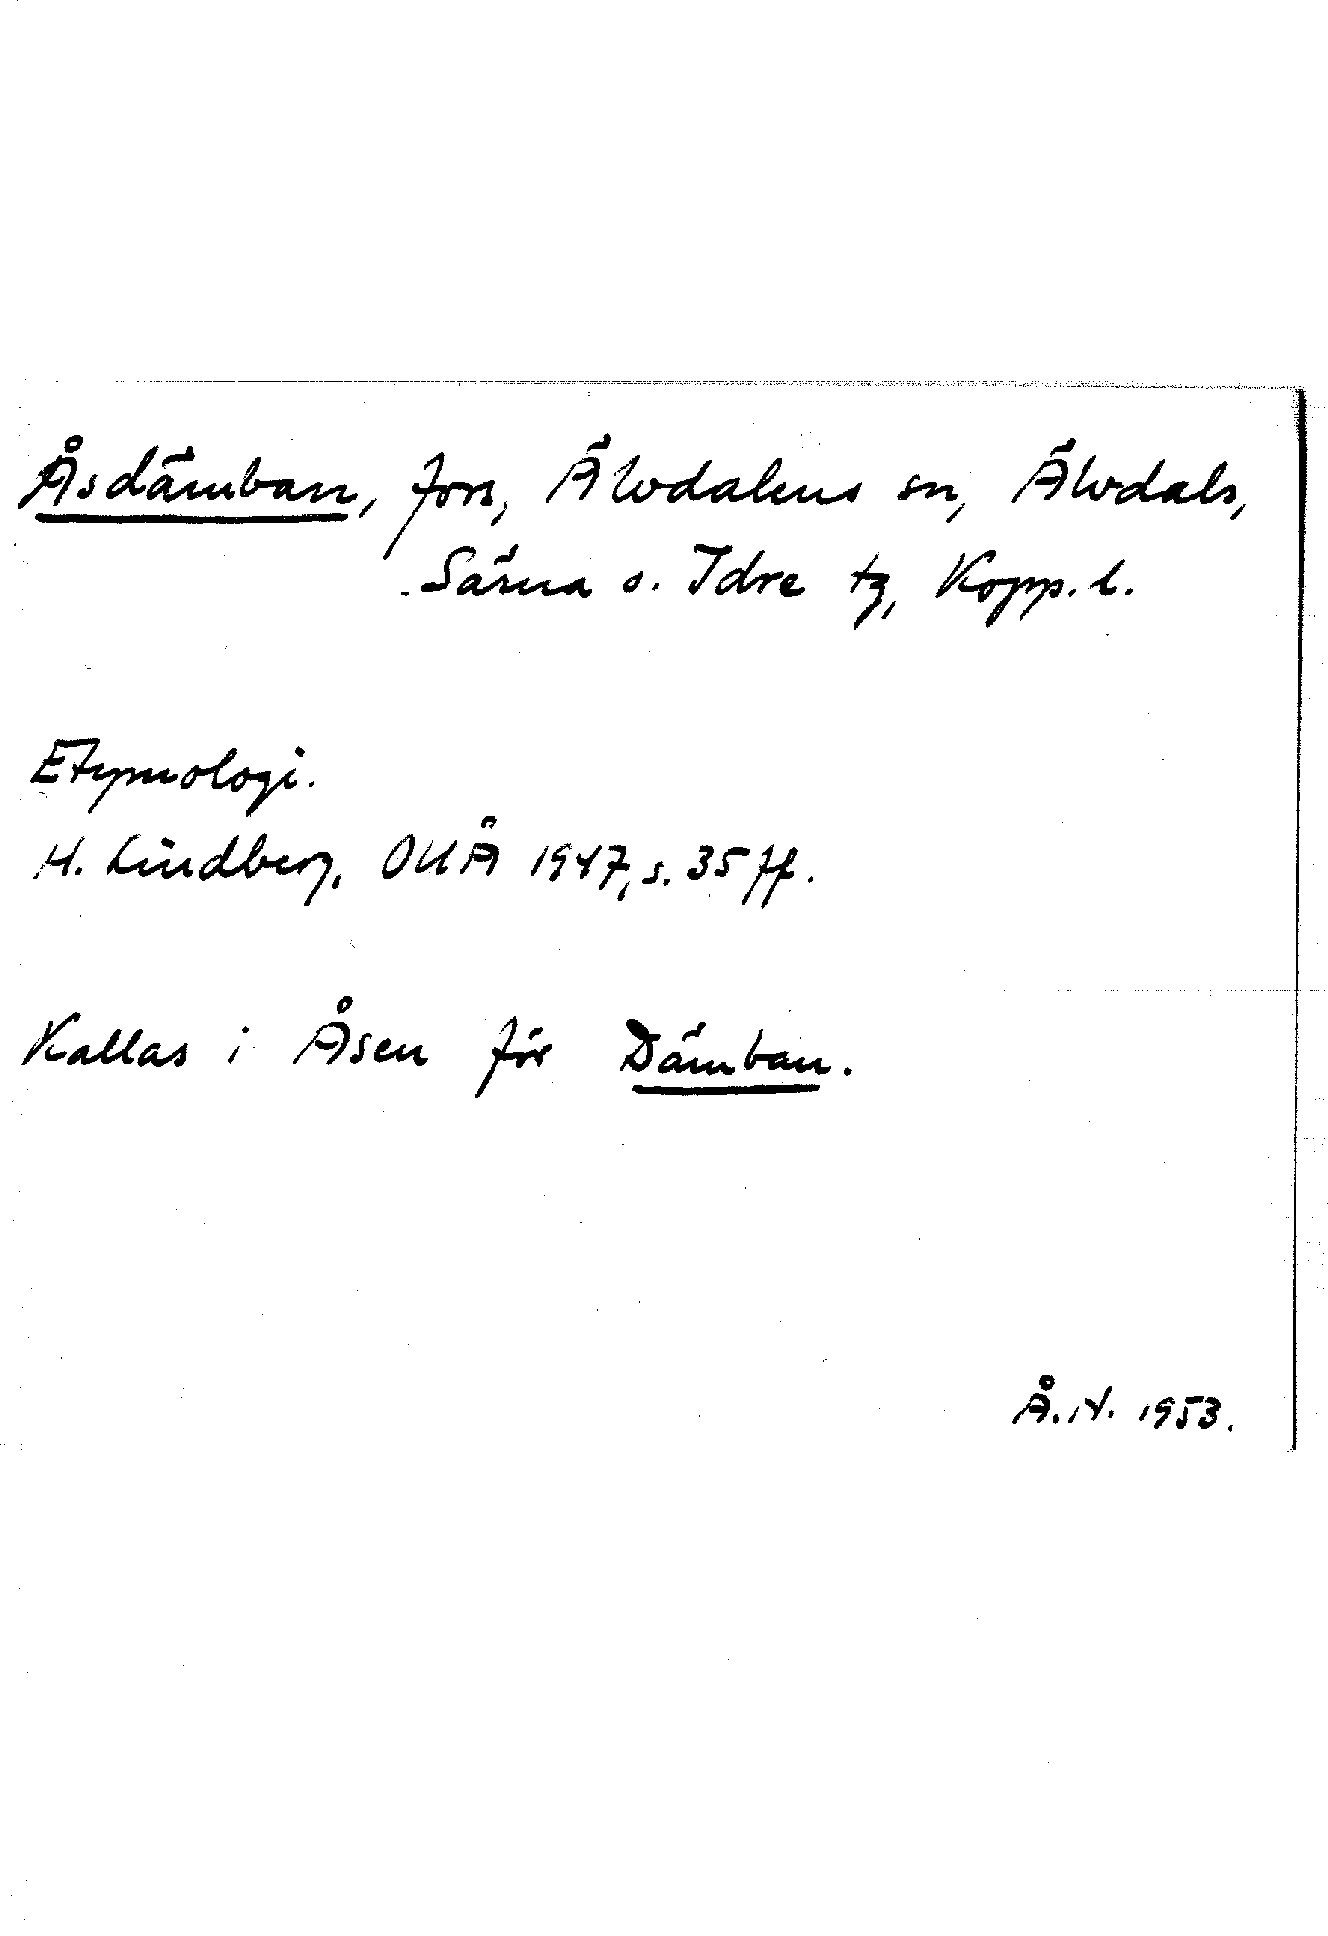 Åsdämban, fors, Älvdalens sn, Älvdals,
Särna o. Idre tg, Kopp. l.
Etymologi.
H. Lindberg, OUÅ 1947, s. 35 ff.
Kallas i Åsen för Dämban.
Å. N. 1953.